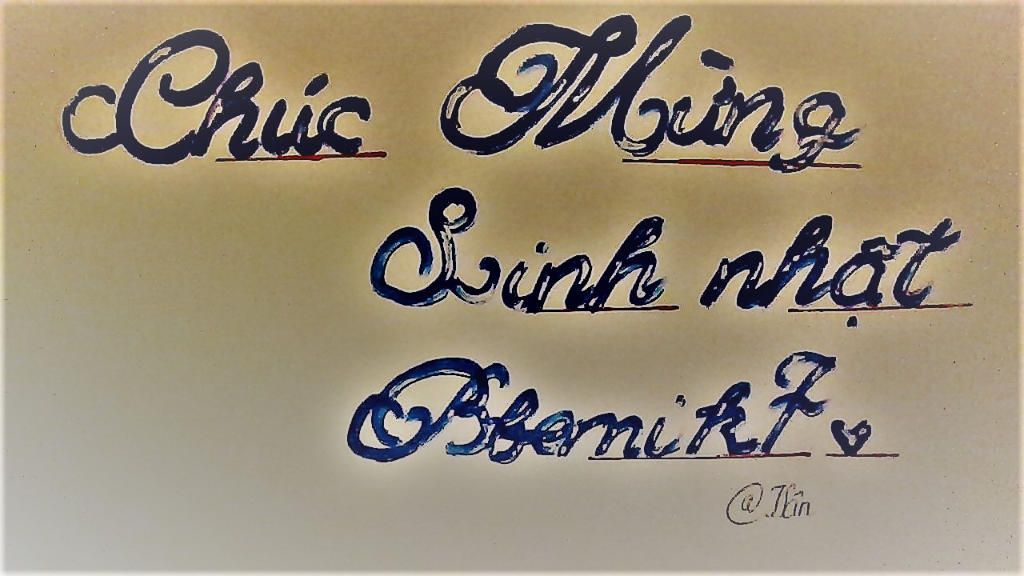 Chúc Mừng
Sinh nhật
Bbomik7